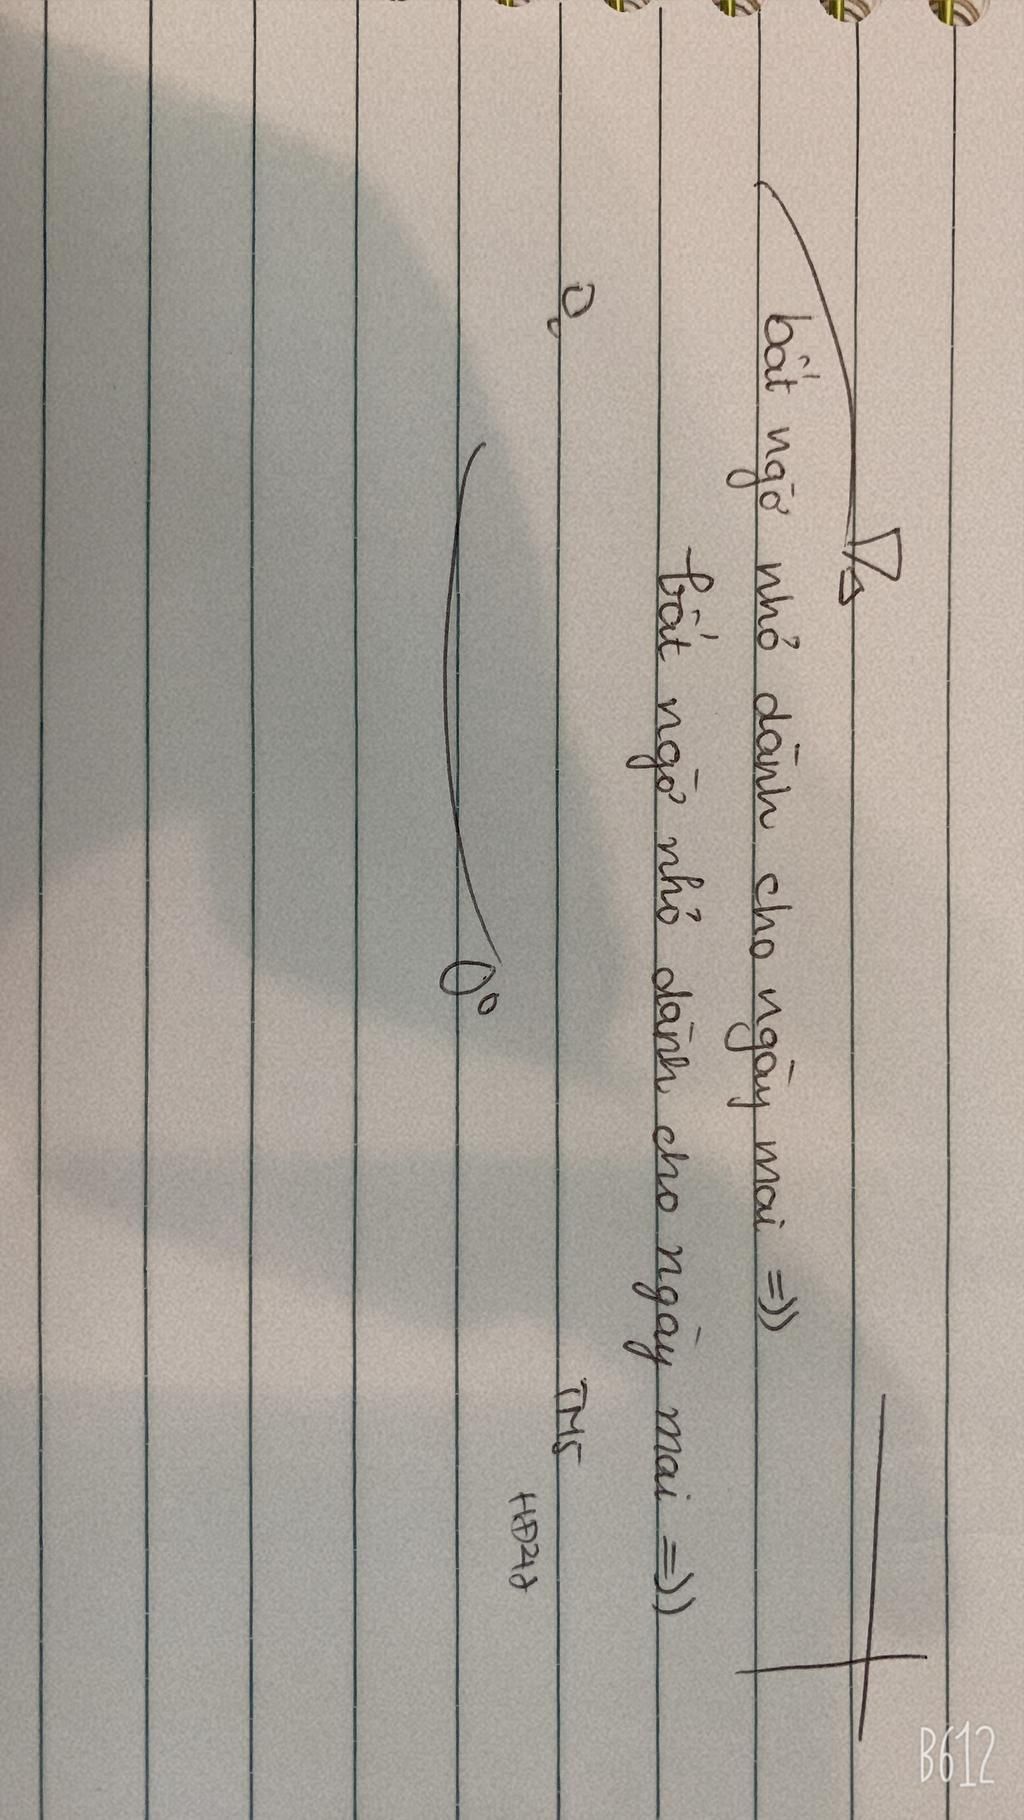 bất ngờ nhỏ dành cho ngày mai =))
bất ngờ nhỏ dành cho ngày mai =))
TM5
B612